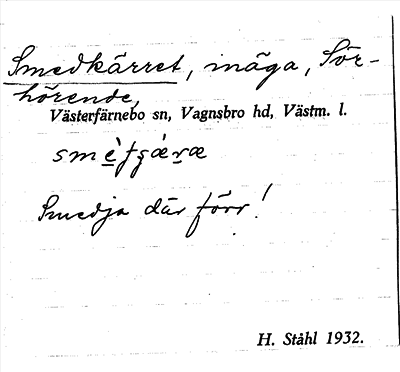 Smedkärret, mäga, Sör-
hörende,
Västerfärnebo sn, Vagnsbro hd, Västm. l.
Smedja där förr!
H. Ståhl 1932.